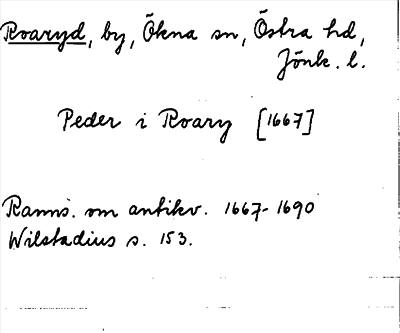 Roaryd, by, Ökna sn, Östra hd,
Jönk. l.
Peder i Roary [1667]
Ranns. om antikv. 1667-1690
Wilstadius s. 153.